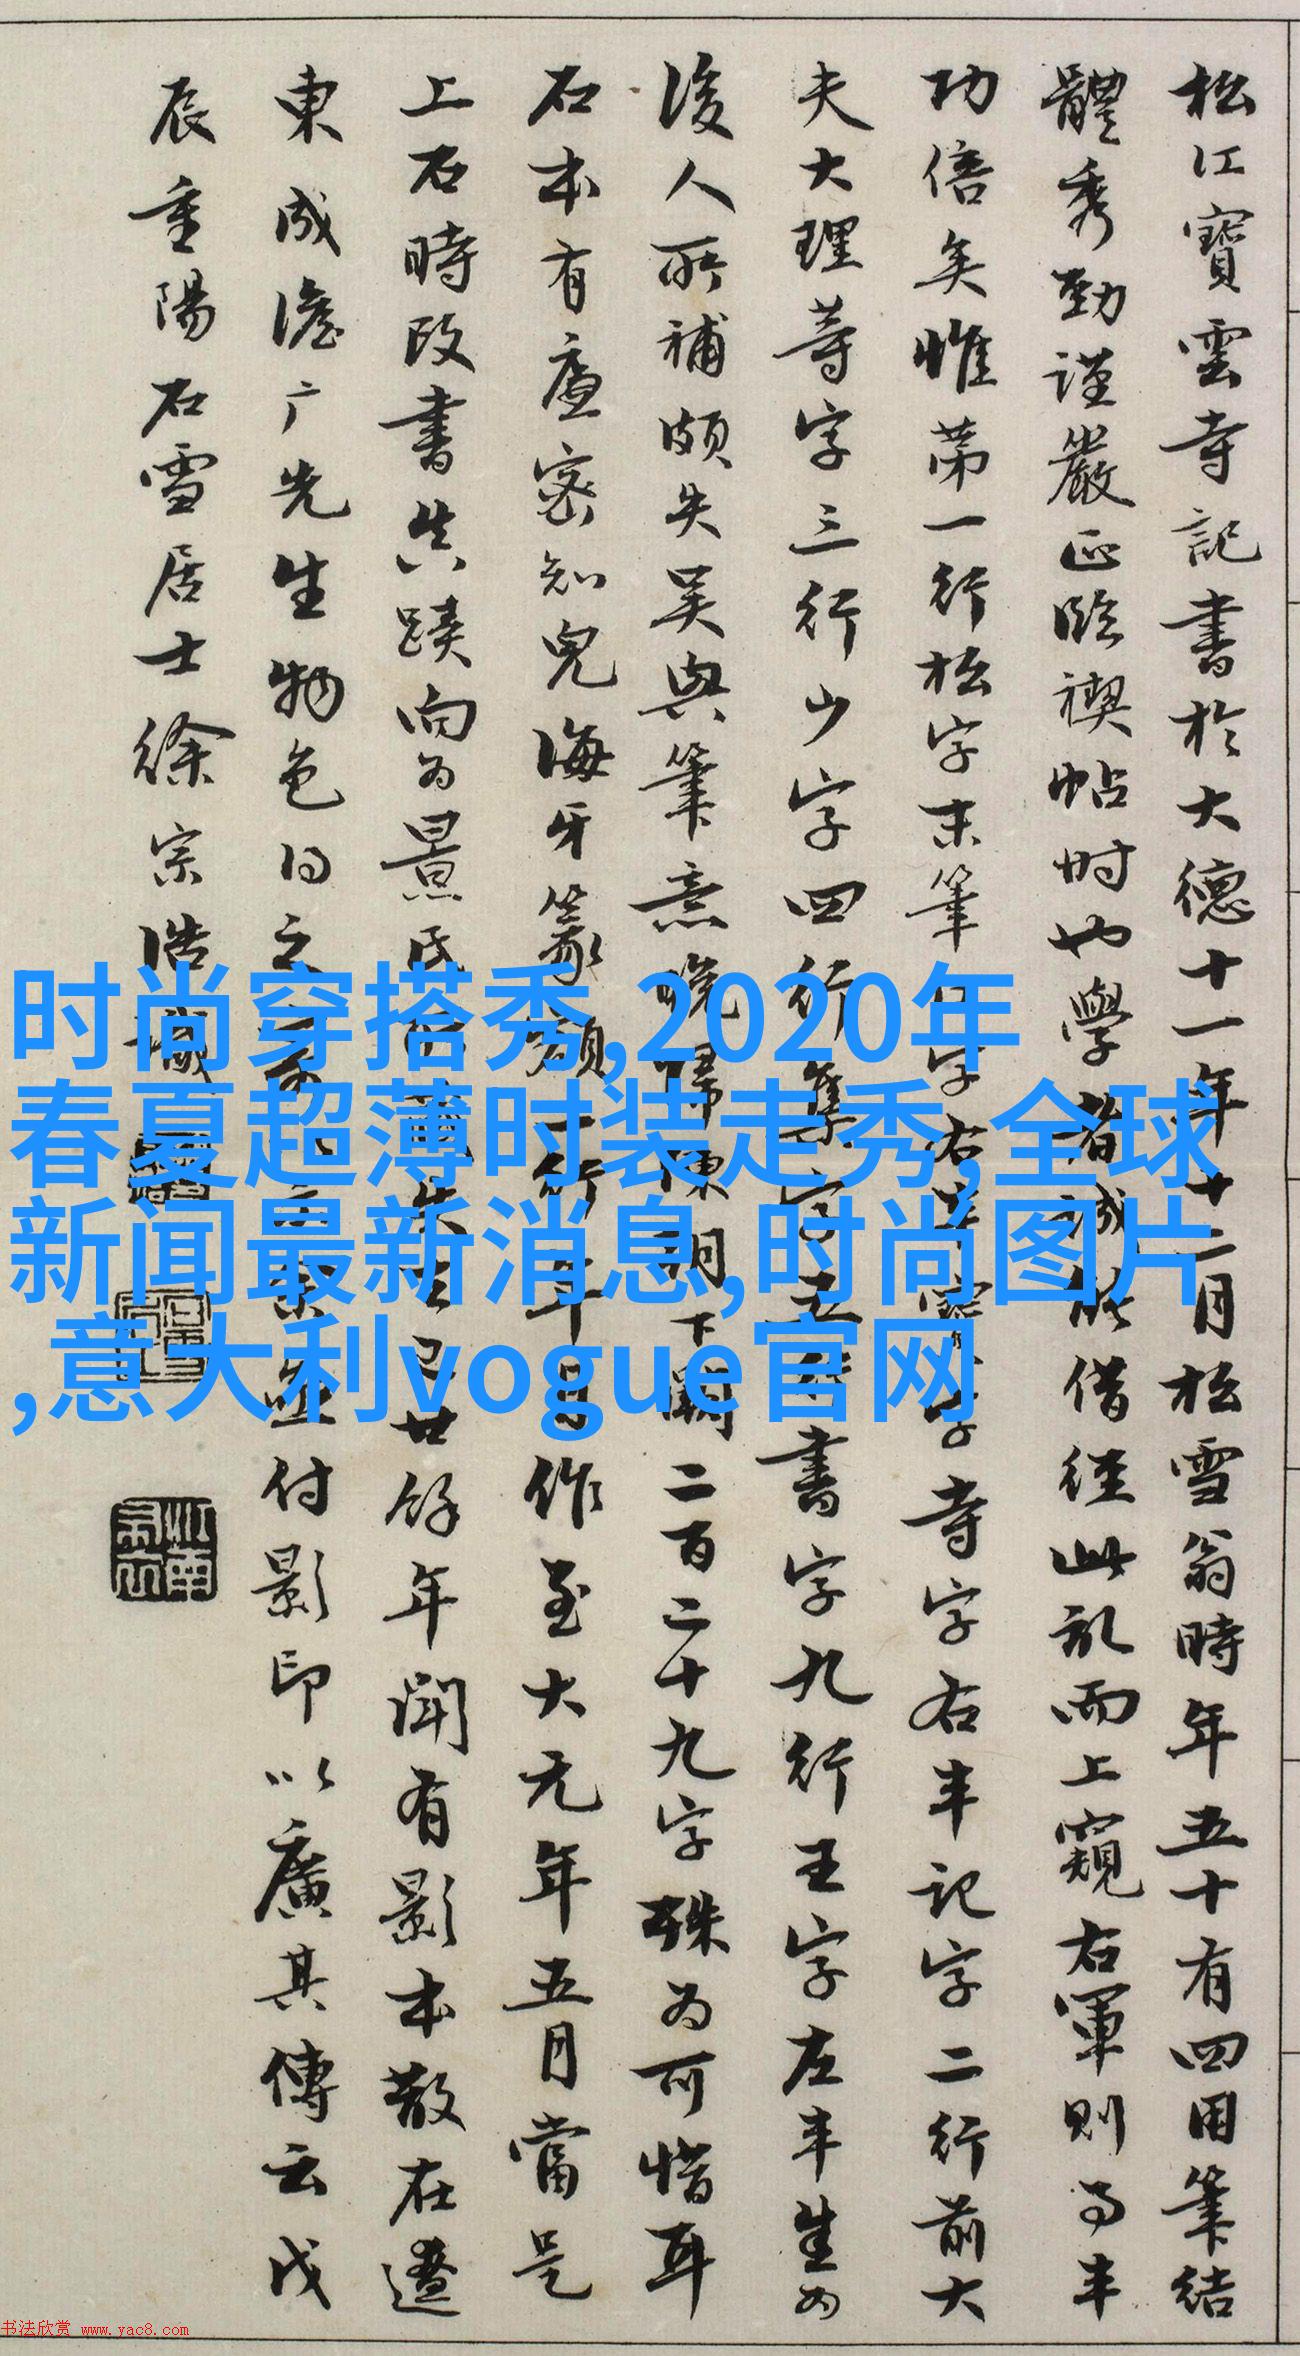 松江寶雲寺記書於大德十一年十二月松雪翁時年五十有四用筆結
體秀勁謹嚴正臨禊帖時也學者誠能借徑此記而上窺右軍則事半
功倍矣惟第一行松字末筆 字右半 字寺字右半記字二行前大
夫大理等字三行少字四行集字五 書字九行王字左半生如
後人所補頗失吴興筆意晚歸陳 下闕二百二十九字殊為可惜耳
石本有廬密知兒海牙篆額一行年月作至大元年五月當是
上石時改書真蹟向為景氏 廿餘年聞有影本散在遼
東成澹广先生物色得之 付影印以廣其傳云戊
辰重陽石雪居士徐宗浩識
时尚穿搭秀,2020年
春夏超薄时装走秀,全球
新闻最新消息,时尚图片
,意大利vogue官网
书法欣赏 www.yac8.com